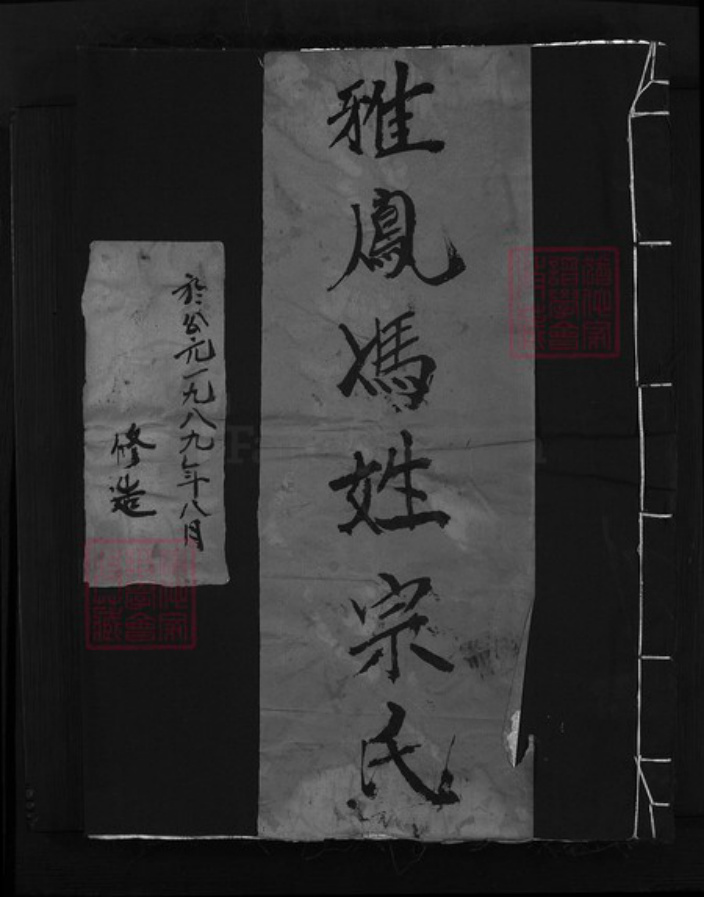 雅鳳馮姓宗氏
於公元一九八九年八月
修造